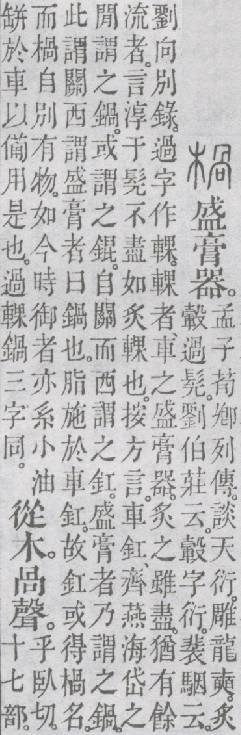 楇 盛膏器。
孟子荀卿列傳。談天衍。雕龍奭。炙
轂過髡。劉伯莊云。轂字衍。裴駰云。
劉向別錄。過字作輠。輠者、車之盛膏器。炙之雖盡。猶有餘
流者。言淳于髡不盡如炙輠也。按方言。車釭、齊燕海岱之
閒謂之鍋。或謂之錕。自關而西謂之釭。盛膏者乃謂之鍋。
此謂關西謂盛膏者曰鍋也。脂施於車釭。故釭或得楇名。
而楇自別有物。如今時御者亦系小油
缾於車以備用是也。過輠鍋三字同。
從木。咼聲。
乎臥切。
十七部。